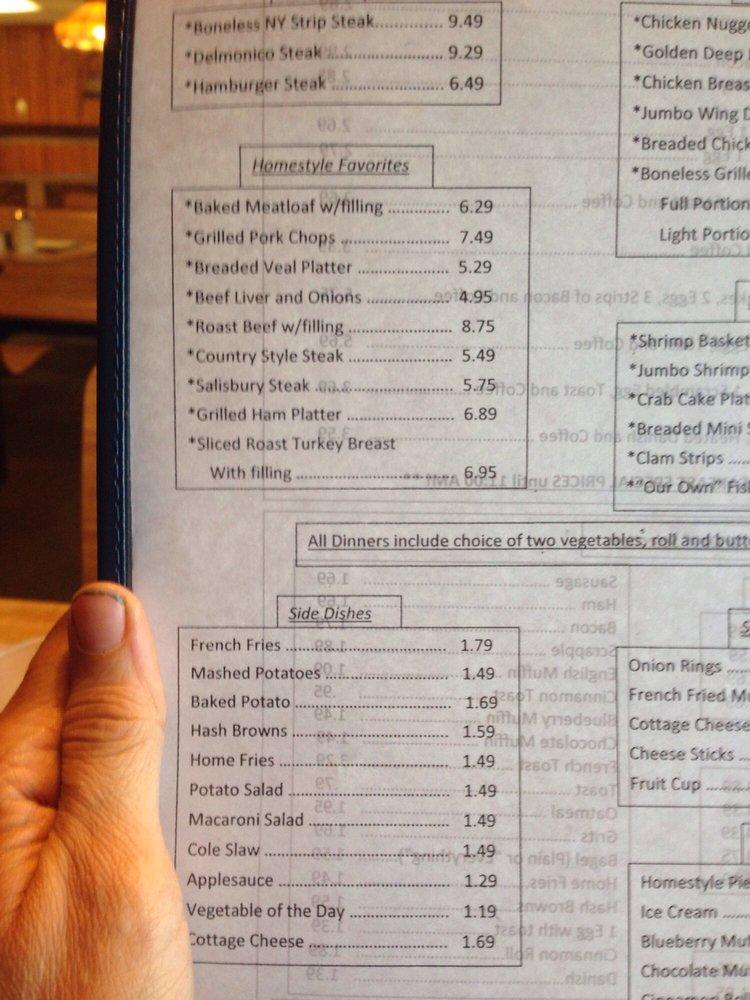 *Boneless NY Strip Steak............. 9.49
*Delmonico Steak ...................... 9.29
*Hamburger Steak ..................... 6.49
Homestyle Favorites
*Baked Meatloaf w/filling ............. 6.29
*Grilled Pork Chops ...................... 7.49
*Breaded Veal Platter ................... 5.29
*Beef Liver and Onions .................. 4.95
*Roast Beef w/filling ..................... 8.75
*Country Style Steak ..................... 5.49
*Salisbury Steak ........................... 5.75
*Grilled Ham Platter ..................... 6.89
*Sliced Roast Turkey Breast
With filling ................................ 6.95
All Dinners include choice of two vegetables, roll and
Side Dishes
French Fries .............................. 1.79
Mashed Potatoes ....................... 1.49
Baked Potato ............................. 1.69
Hash Browns ............................. 1.59
Home Fries ................................ 1.49
Potato Salad .............................. 1.49
Macaroni Salad .......................... 1.49
Cole Slaw .................................. 1.49
Applesauce ................................ 1.29
Vegetable of the Day .................. 1.19
Cottage Cheese ......................... 1.69
*Chicken
*Golden Deep
*Chicken
*Jumbo Wing
*Breaded
*Boneless
Full Portion
Light
*Shrimp Basket
*Jumbo Shrimp
*Crab Cake
*Breaded Mini
*Clam Strips .....
*"Our Own"
Onion Rings ....
French Fried
Cottage Cheese
Cheese Sticks ..
Fruit Cup ........
Homestyle Pie
Ice Cream .....
Blueberry
Chocolate